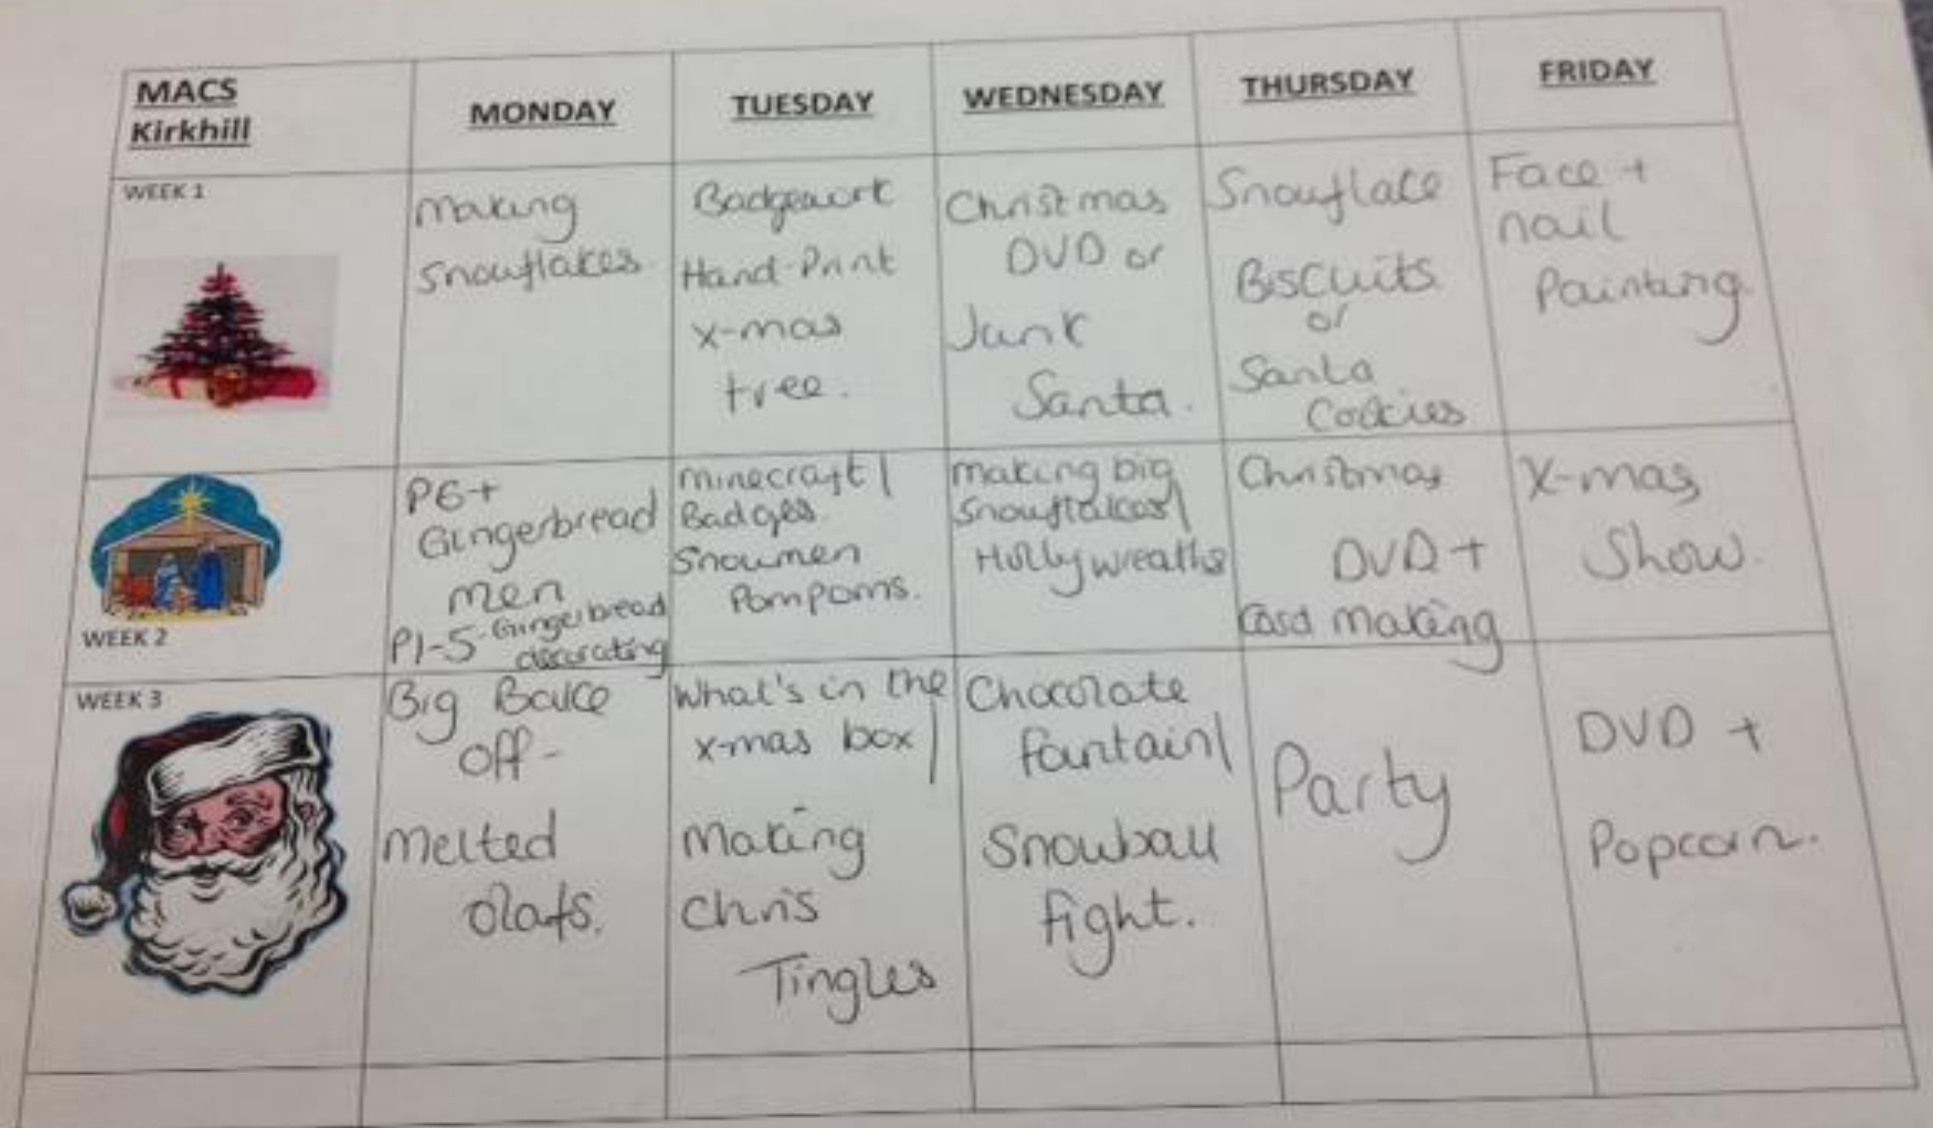 MACS
Kirkhill
MONDAY
TUESDAY
WEDNESDAY
THURSDAY
FRIDAY
WEEK 1
Making
Snowflakes.
Badgework
Hand-Print
x-mas
tree.
Christmas
DVD or
Junk
Santa.
Snowflake
Biscuits
or
Santa
Cookies
Face +
nail
Painting.
WEEK 2
P6+
Gingerbread
men
P1-5-Gingerbread
decorating
Minecraft/
Badges.
Snowmen
Pompoms.
Making big
Snowflakes/
Holly wreaths
Christmas
DVD +
Card Making
X-mas
Show.
WEEK 3
Big Bake
Off-
Melted
Olafs.
What's in the
x-mas box/
Making
Chris
Tingles
Chocolate
fountain/
Snowball
fight.
Party
DVD +
Popcorn.